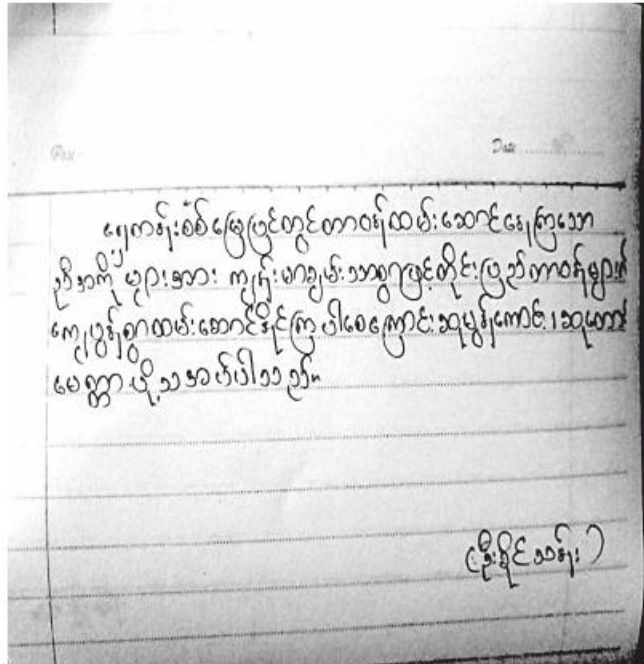 Date
ရှေ့တန်းစစ်မြေပြင်တွင်တာဝန်ထမ်းဆောင်နေကြသော
ညီအကို များအား ကျန်းမာချမ်းသာစွာဖြင့်တိုင်းပြည်တာဝန်များကို
ကျေပွန်စွာထမ်းဆောင်နိုင်ကြပါစေကြောင်းဆုမွန်ကောင်း ဆုတောင်
မေတ္တာ ပို့သအပ်ပါသည်။
(ဦးခိုင်သန်း)